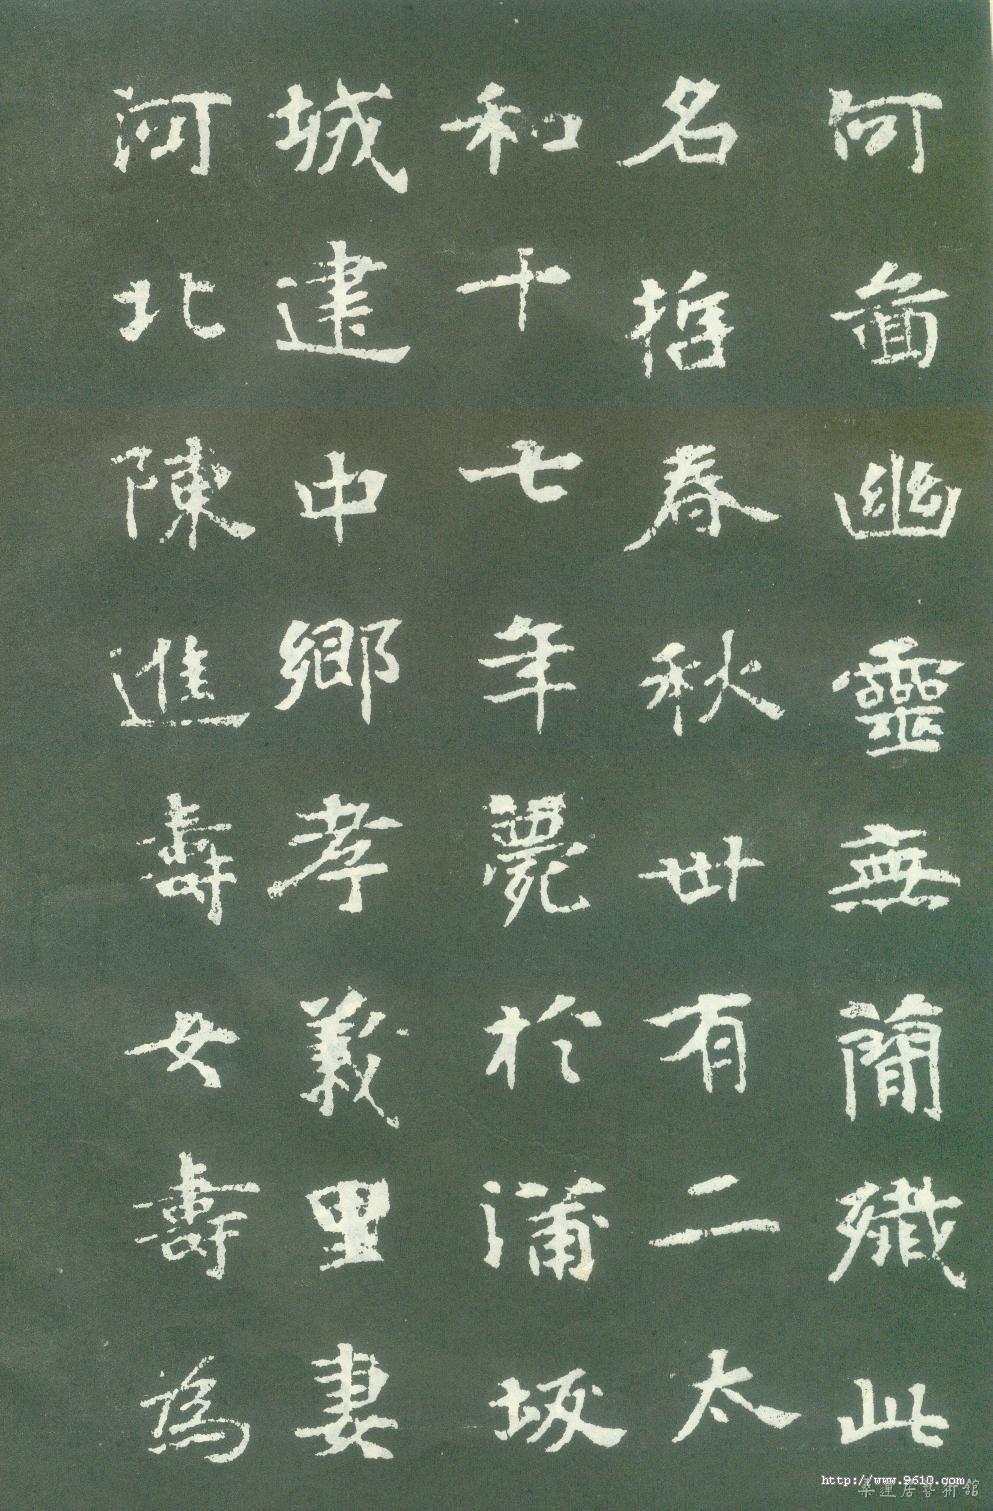 何啚幽靈無蕳殲此
名哲春秋卌有二太
和十七年薨於蒲坂
城建中鄉孝義里妻
河北陳進壽女壽為
http://www.9610.com
桑蓮居藝術館